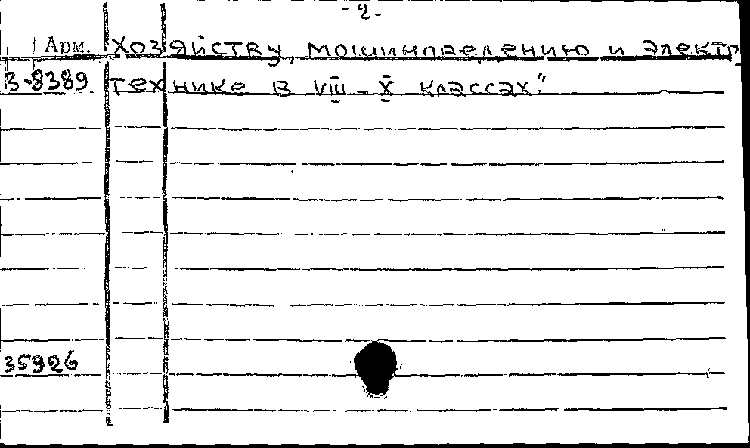 -2-
Арм. хозяйству, мошиноведению и электр
3-8389 технике в VIII-X классах."
35926